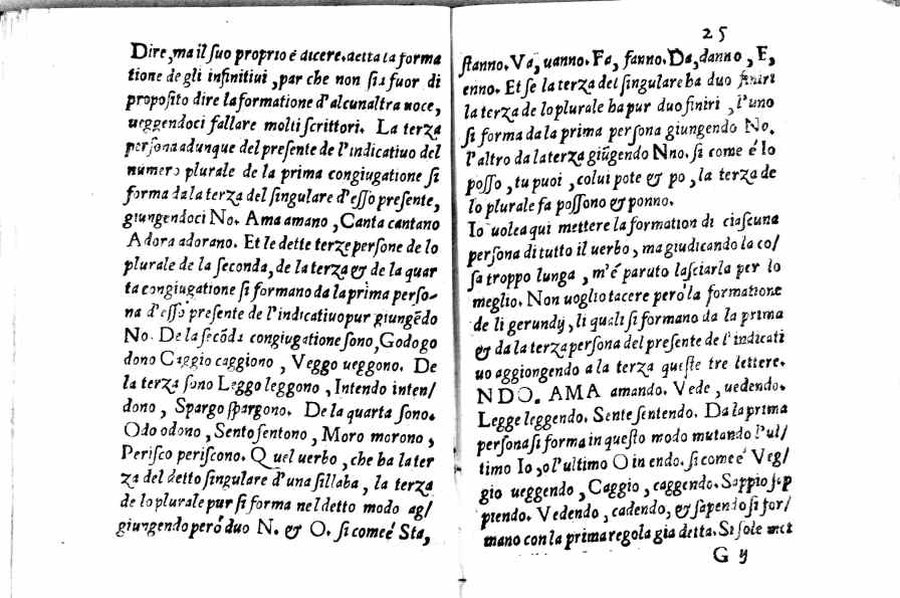 Dire, ma il ſuo proprio è dicere. detta la forma
tione de gli infinitiui, par che non ſia fuor di
propoſito dire la formatione d'alcun altra uoce,
ueggendoci fallare molti ſcrittori. La terza
perſona adunque del preſente de l'indicatiuo del
numero plurale de la prima congiugatione ſi
forma da la terza del ſingulare d'eſſo preſente,
giungendoci No. Ama amano, Canta cantano
Adora adorano. Et le dette terze perſone de lo
plurale de la ſeconda, de la terza & de la quar
ta congiugatione ſi formano da la prima perſo-
na d'eſſo preſente de l'indicatiuo pur giungẽdo
No. De la ſecõda congiugatione ſono, Godo go
dono Caggio caggiono, Veggo ueggono. De
la terza ſono Leggo leggono, Intendo inten/
dono, Spargo ſpargono. De la quarta ſono.
Odo odono, Sento ſentono, Moro morono,
Periſco periſcono. Quel uerbo, che ha la ter
za del detto ſingulare d'una ſillaba, la terza
de lo plurale pur ſi forma nel detto modo ag/
giungendo però duo N. & O. ſi come è Sta,
25
ſtanno. Va, uanno. Fa, fanno. Da, danno, E,
enno. Et ſe la terza del ſingulare ha duo finiri
la terza de lo plurale ha pur duo finiri, l'uno
ſi forma da la prima perſona giungendo No.
l'altro da la terza giũgendo Nno. ſi come é lo
poſſo, tu puoi, colui pote & po, la terza de
lo plurale fa poſſono & ponno.
Io uolea qui mettere la formation di ciaſcuna
perſona di tutto il uerbo, ma giudicando la co/
ſa troppo lunga, m'é paruto laſciarla per lo
meglio. Non uoglio tacere però la formatione
de li gerundij, li quali ſi formano da la prima
& da la terza perſona del preſente de l'indicati
uo aggiongendo a la terza queſte tre lettere.
NDO. AMA amando. Vede, uedendo.
Legge leggendo. Sente ſentendo. Da la prima
perſona ſi forma in queſto modo mutando l'ul/
timo Io, o l'ultimo O in endo. ſi come é Veg/
gio ueggendo, Caggio, caggendo. Sappio ſap
piendo. Vedendo, cadendo, & ſapendo ſi for/
mano con la prima regola gia detta. Si ſole met
G ij